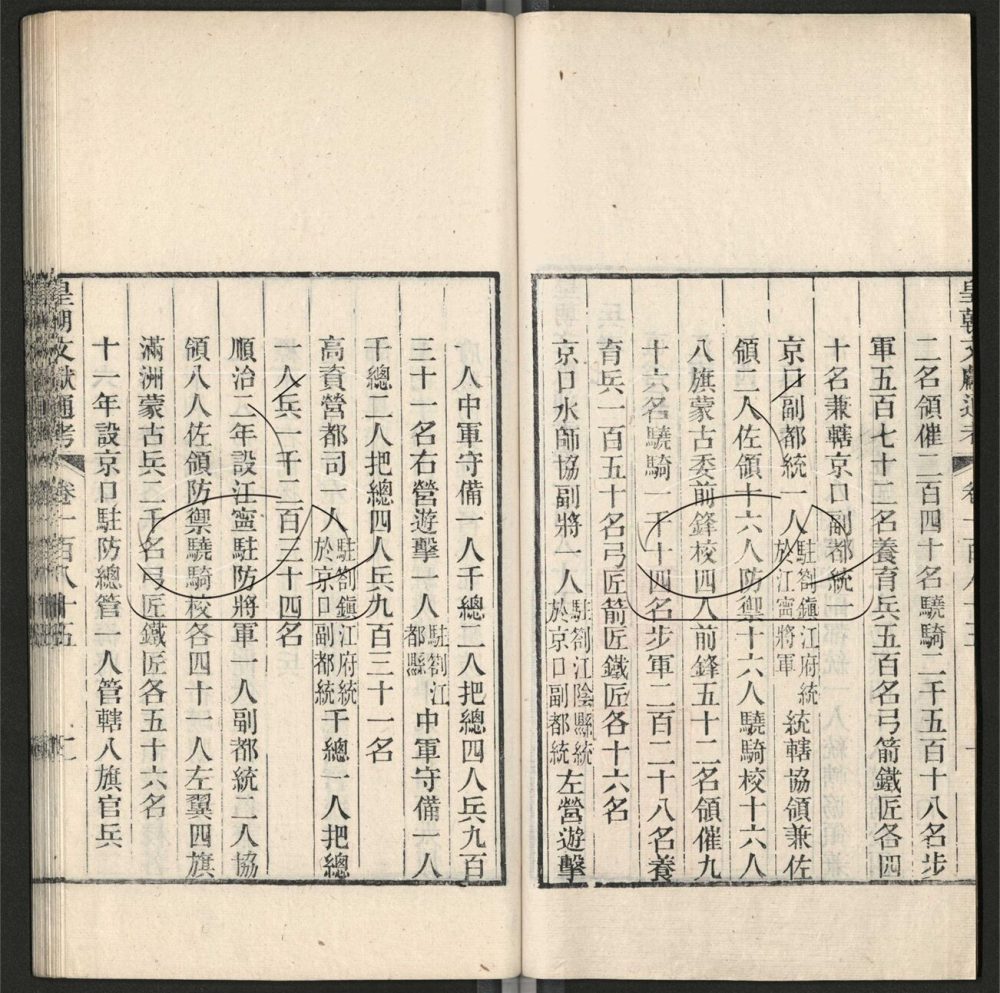 皇朝文獻通考 卷一百八十五
二名領催二百四十名驍騎二千五百十八名步
軍五百七十二名養育兵五百名弓箭鐵匠各四
十名兼轄京口副都統一
京口副都統一人駐劄鎮江府統於江寧將軍統轄協領兼佐
領二人佐領十六人防禦十六人驍騎校十六人
八旗蒙古委前鋒校四人前鋒五十二名領催九
十六名驍騎一千十四名步軍二百二十八名養
育兵一百五十名弓匠箭匠鐵匠各十六名
京口水師協副將一人駐劄江陰縣統於京口副都統左營遊擊
一人中軍守備一人千總二人把總四人兵九百
三十一名右營遊擊一人駐劄江都縣中軍守備一人
千總二人把總四人兵九百三十一名
高資營都司一人駐劄鎮江府統於京口副都統千總一人把總
一人兵一千二百三十四名
順治二年設江寧駐防將軍一人副都統二人協
領八人佐領防禦驍騎校各四十一人左翼四旗
滿洲蒙古兵二千名弓匠鐵匠各五十六名
十一年設京口駐防總管一人管轄八旗官兵
皇朝文獻通考 卷一百八十五 七